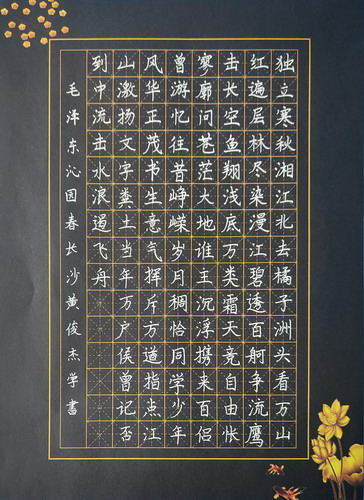 独立寒秋湘江北去橘子洲头看万山
红遍层林尽染漫江碧透百舸争流鹰
击长空鱼翔浅底万类霜天竞自由怅
寥廓问苍茫大地谁主沉浮携来百侣
曾游忆往昔峥嵘岁月稠恰同学少年
风华正茂书生意气挥斥方遒指点江
山激扬文字粪土当年万户侯曾记否
到中流击水浪遏飞舟
毛泽东沁园春长沙黄俊杰学书